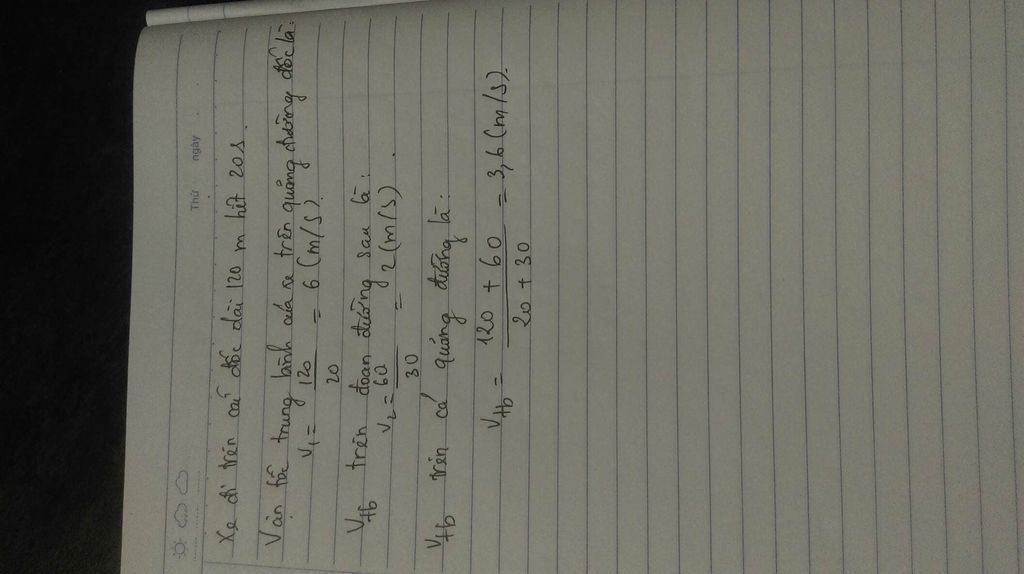 Thứ ngày
Xe đi trên cái dốc dài 120 m hết 20s.
Vận tốc trung bình của xe trên quãng đường dốc là:
V₁ = 120/20 = 6 (m/s).
Vtb trên đoạn đường sau là:
V₂ = 60/30 = 2 (m/s)
Vtb trên cả quãng đường là:
Vtb = (120 + 60)/(20 + 30) = 3,6 (m/s).